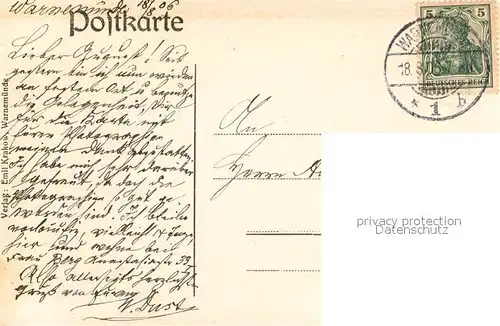 Warnemünde 18/8 06
Postkarte
Lieber August! Seit
gestern bin ich nun wieder
an festem Ort u benutze
die Gelegenheit, Dir
für die Karte mit
Ihren Photographie
meinen Dank abzustatten.
Ich habe mich sehr darüber
gefreut, da doch die
Photographien so gut ge
worden sind. Ich bleibe
vielleicht 14 Tage
hier und wohne bei
Frau Berg 39,
Also allerseits herzliche
Gruß von
Verlag: Emil Krakow, Warnemünde
An
Herrn
5 5
DEUTSCHES REICH
WARNEMÜNDE
18.8
* 1 b
privacy protection
Datenschutz